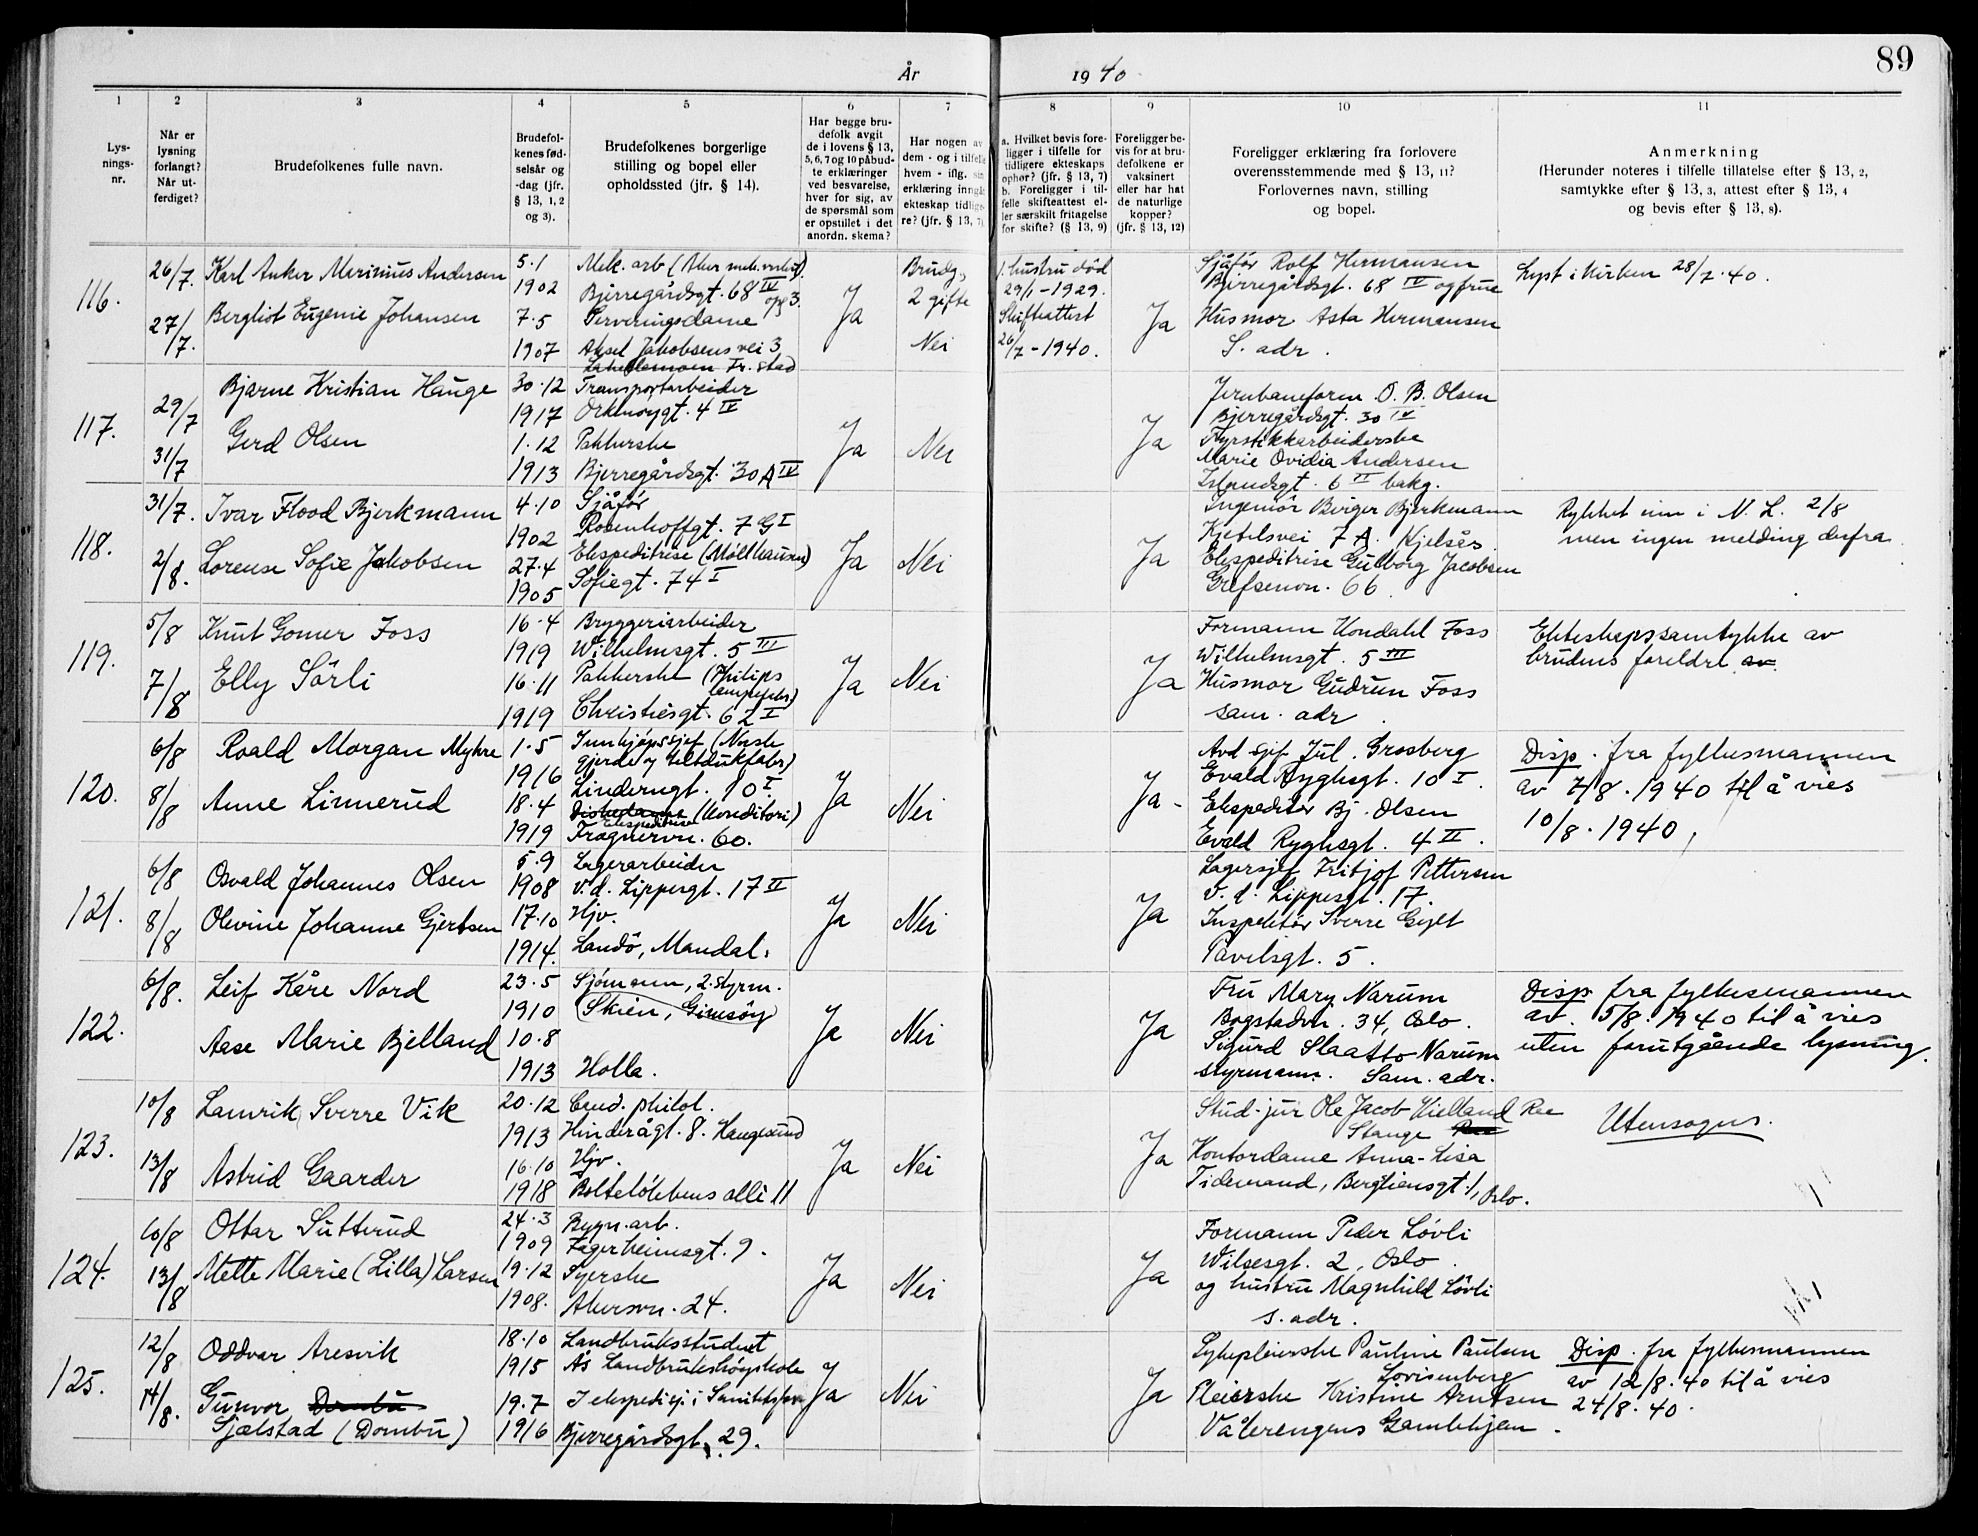 89
År 1940
1
2
3
4
5
6
7
8
9
10
11
Lys-
nings-
nr.
Når er
lysning
forlangt?
Når ut-
ferdiget?
Brudefolkenes fulle navn.
Brudefol-
kenes fød-
selsår og
-dag (jfr.
§ 13, 1, 2
og 3).
Brudefolkenes borgerlige
stilling og bopel eller
opholdssted (jfr. § 14).
Har begge bru-
defolk avgit
de i lovens § 13,
5, 6, 7 og 10 påbud-
te erklæringer
ved besvarelse,
hver for sig, av
de spørsmål som
er opstillet i det
anordn. skema?
Har nogen av
dem - og i tilfelle
hvem - iflg. sin
erklæring inngått
ekteskap tidlige-
re? (jfr. § 13, 7)
a. Hvilket bevis fore-
ligger i tilfelle for
tidligere ekteskaps
ophør? (jfr. § 13, 7)
b. Foreligger i til-
felle skifteattest el-
ler særskilt fritagelse
for skifte? (§ 13, 9)
Foreligger be-
vis for at bru-
defolkene er
vaksinert
eller har hat
de naturlige
kopper?
(jfr. § 13, 12)
Foreligger erklæring fra forlovere
overensstemmende med § 13, 11?
Forlovernes navn, stilling
og bopel.
Anmerkning
(Herunder noteres i tilfelle tillatelse efter § 13, 2,
samtykke efter § 13, 3, attest efter § 13, 4
og bevis efter § 13, 8).
116.
26/7.
27/7.
Karl Anker Marinius Andersen
Bergliot Eugenie Johansen
5.1
1902
7.5
1907
Mek. arb (Aker mek. verksted).
Bjerregårdsgt. 68 IV opg 3.
Serveringsdame
Aksel Jakobsens vei 3
Fr. stad
Ja
Brudg.
2 gifte
Nei
1. hustru död
29/1-1929.
Skifteattest
26/7-1940.
Ja
Sjåför Rolf Hermansen
Bjerregårdsgt. 68 IV og frue
Husmor Asta Hermansen
S. adr.
Lyst i kirken 28/7.40.
117.
29/7
31/7
Bjarne Kristian Hauge
Gerd Olsen
30.12
1917
1.12
1913
Transportarbeider
Orknöygt. 4 IV
Pakkerske
Bjerregårdsgt. 30 A IV
Ja
Nei
Ja
Jernbaneform. O. B. Olsen
Bjerregårdsgt. 30 IV
Fyrstikkarbeiderske
Marie Ovidia Andersen
Islandsgt. 6 II bakg.
118.
31/7.
2/8.
Ivar Flood Bjerkmann
Lorense Sofie Jakobsen
4.10
1902
27.4
1905
Sjåför
Rosenhoffgt. 7 G I
Ekspeditrise (Möllhausen)
Sofiegt. 74 I
Ja
Nei
Ja
Ingeniör Birger Bjerkmann
Kjetilsvei 7 A. Kjelsås
Ekspeditrise Gudborg Jacobsen
Grefsenvn. 66.
Rykket inn i N. L. 2/8
men ingen melding derfra
119.
5/8
7/8
Knut Gomer Foss
Elly Sörli
16.4
1919
16.11
1919
Bryggeriarbeider
Wilhelmsgt. 5 III
Pakkerske (Philips
lampefabr)
Christiesgt. 62 I
Ja
Nei
Ja
Formann Kondahl Foss
Wilhelmsgt. 5 III
Husmor Gudrun Foss
sam. adr.
Ekteskapssamtykke av
brudens foreldre av
120.
6/8
8/8
Roald Morgan Myhre
Anne Linnerud
1.5
1916
18.4
1919
Innkjöpssjef (Norsk
gjerde og teltdukfabr)
Linderngt. 10 I.
Diskedame (Konditori)
Ekspeditrise
Frognervn. 60.
Ja
Nei
Ja-
Avd sjef Jul. Grosberg
Evald Ryghsgt. 10 I.
Ekspeditör Bj. Olsen
Evald Ryghsgt. 4 II.
Disp. fra fylkesmannen
av 7/8.1940 til å vies
10/8.1940,
121.
6/8
8/8
Osvald Johannes Olsen
Olevine Johanne Gjertsen
5.9
1908
17.10
1914.
Lagerarbeider
V. d. Lippesgt. 17 II
Hjv.
Landö, Mandal.
Ja
Nei
Ja
Lagersjef Fritjof Pettersen
V. d. Lippesgt. 17.
Inspektör Sverre
Pavelsgt. 5.
122.
6/8.
Leif Kåre Nord
Aase Marie Bjelland
23.5
1910
10.8
1913
Sjömann, 2. styrm.
(Skien, Gimsöy)
Holla.
Ja
Nei
Ja
Fru Mary Narum
Bogstadvn. 34, Oslo.
Sigurd Slaatto Narum
styrmann. Sam. adr.
Disp. fra fylkesmannen
av. 5/8.1940 til å vies
uten forutgående lysning.
123.
10/8
13/8
Lamrik Sverre Vik
Astrid Gaarder
20.12
1913
16.10
1918
Cand. philol.
Hinderågt. 8. Haugesund
Hjv.
Bolteløkkens allé 11
Ja
Nei
Ja
Stud. jur Ole Jacob Kielland Rae
Stange
Kontordame Anna-Lisa
Tidemand, Bergliensgt. 1, Oslo.
Utensogns.
124.
10/8
13/8
Ottar Sutterud
Mette Marie (Lilla) Larsen
24.3
1909
19.12
1908.
Bygn. arb.
Fagerheimsgt. 9.
Syerske
Akersvn. 24.
Ja
Nei
Ja
Formann Peder Lövli
Wilsesgt. 2, Oslo
og hustru Magnhild Lövli
s. adr.
125.
12/8
14/8.
Oddvar Aresvik
Gunvor Dombu
Sjælstad (Dombu)
18.10
1915
19.7
1916
Landbruksstudent
Ås Landbrukshöyskole
Bjerregårdsgt. 29.
Ja
Nei
Ja
Sykepleierske Pauline Paulsen
Lovisenberg
Pleierske Kristine Arntsen
Vålerengens Gamlehjem.
Disp. fra fylkesmannen
av 12/8.40 til å vies
24/8.40.